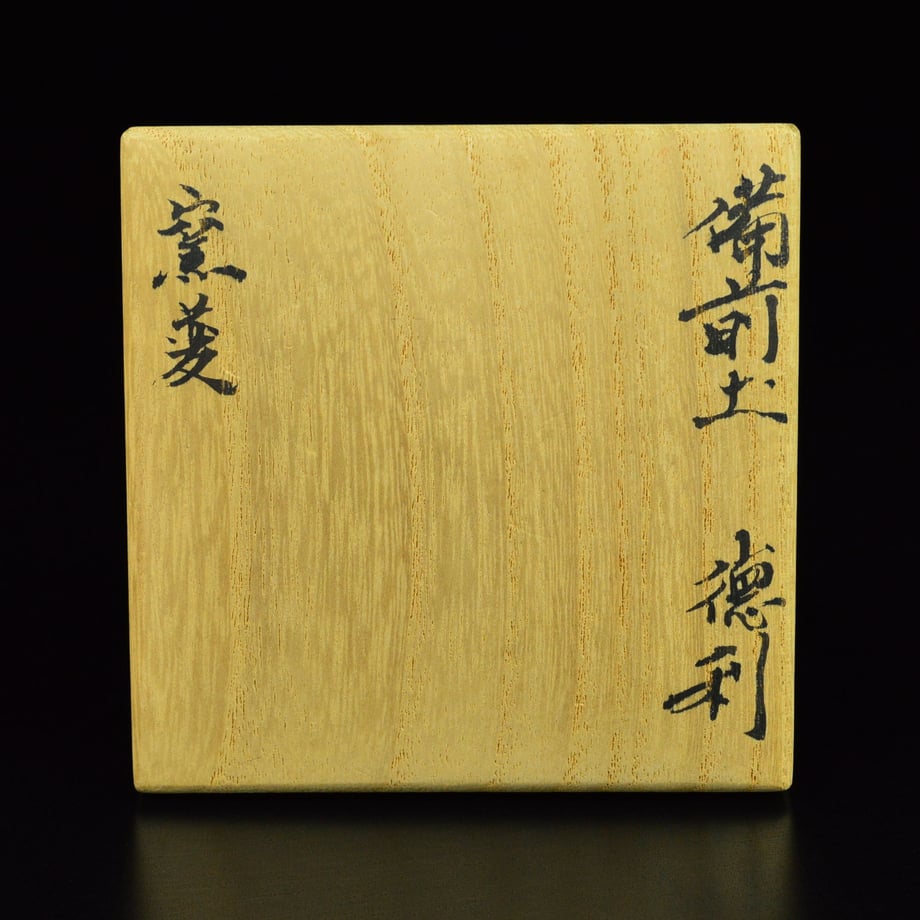 備前土 徳利
窯變